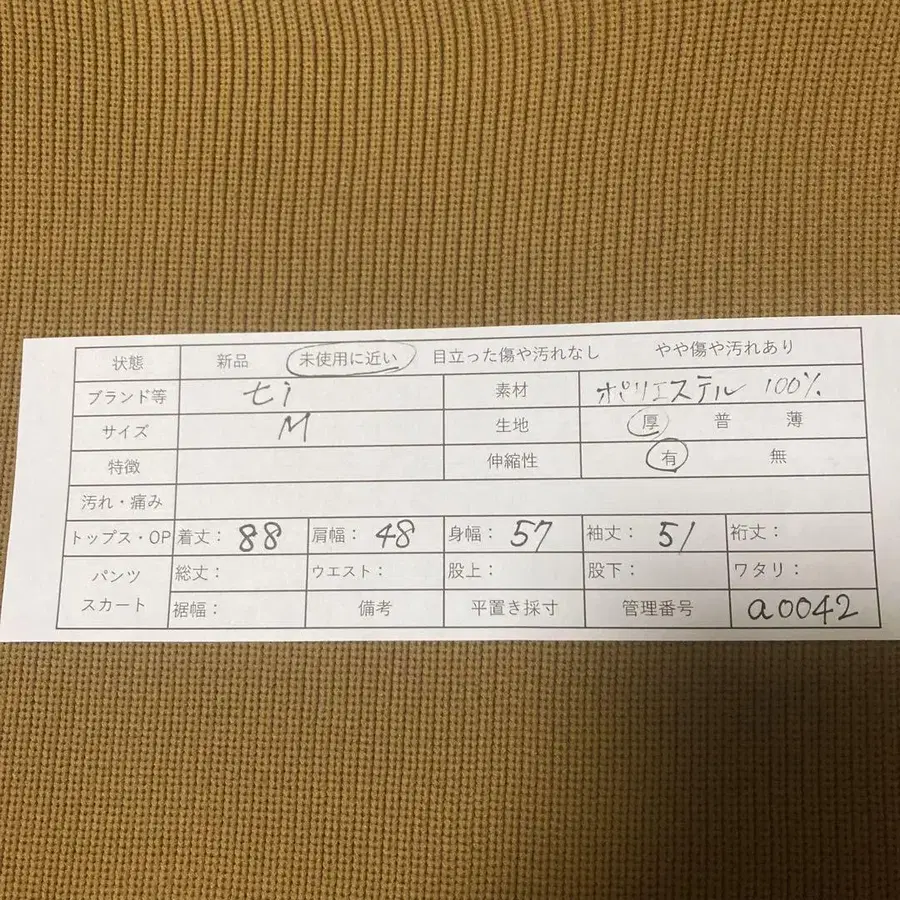 状態 新品 未使用に近い 目立った傷や汚れなし やや傷や汚れあり
ブランド等 ti 素材 ポリエステル 100%
サイズ M 生地 厚 普 薄
特徴 伸縮性 有 無
汚れ・痛み
トップス・OP 着丈: 88 肩幅: 48 身幅: 57 袖丈: 51 裄丈:
パンツ 総丈: ウエスト: 股上: 股下: ワタリ:
スカート 裾幅: 備考 平置き採寸 管理番号 a0042